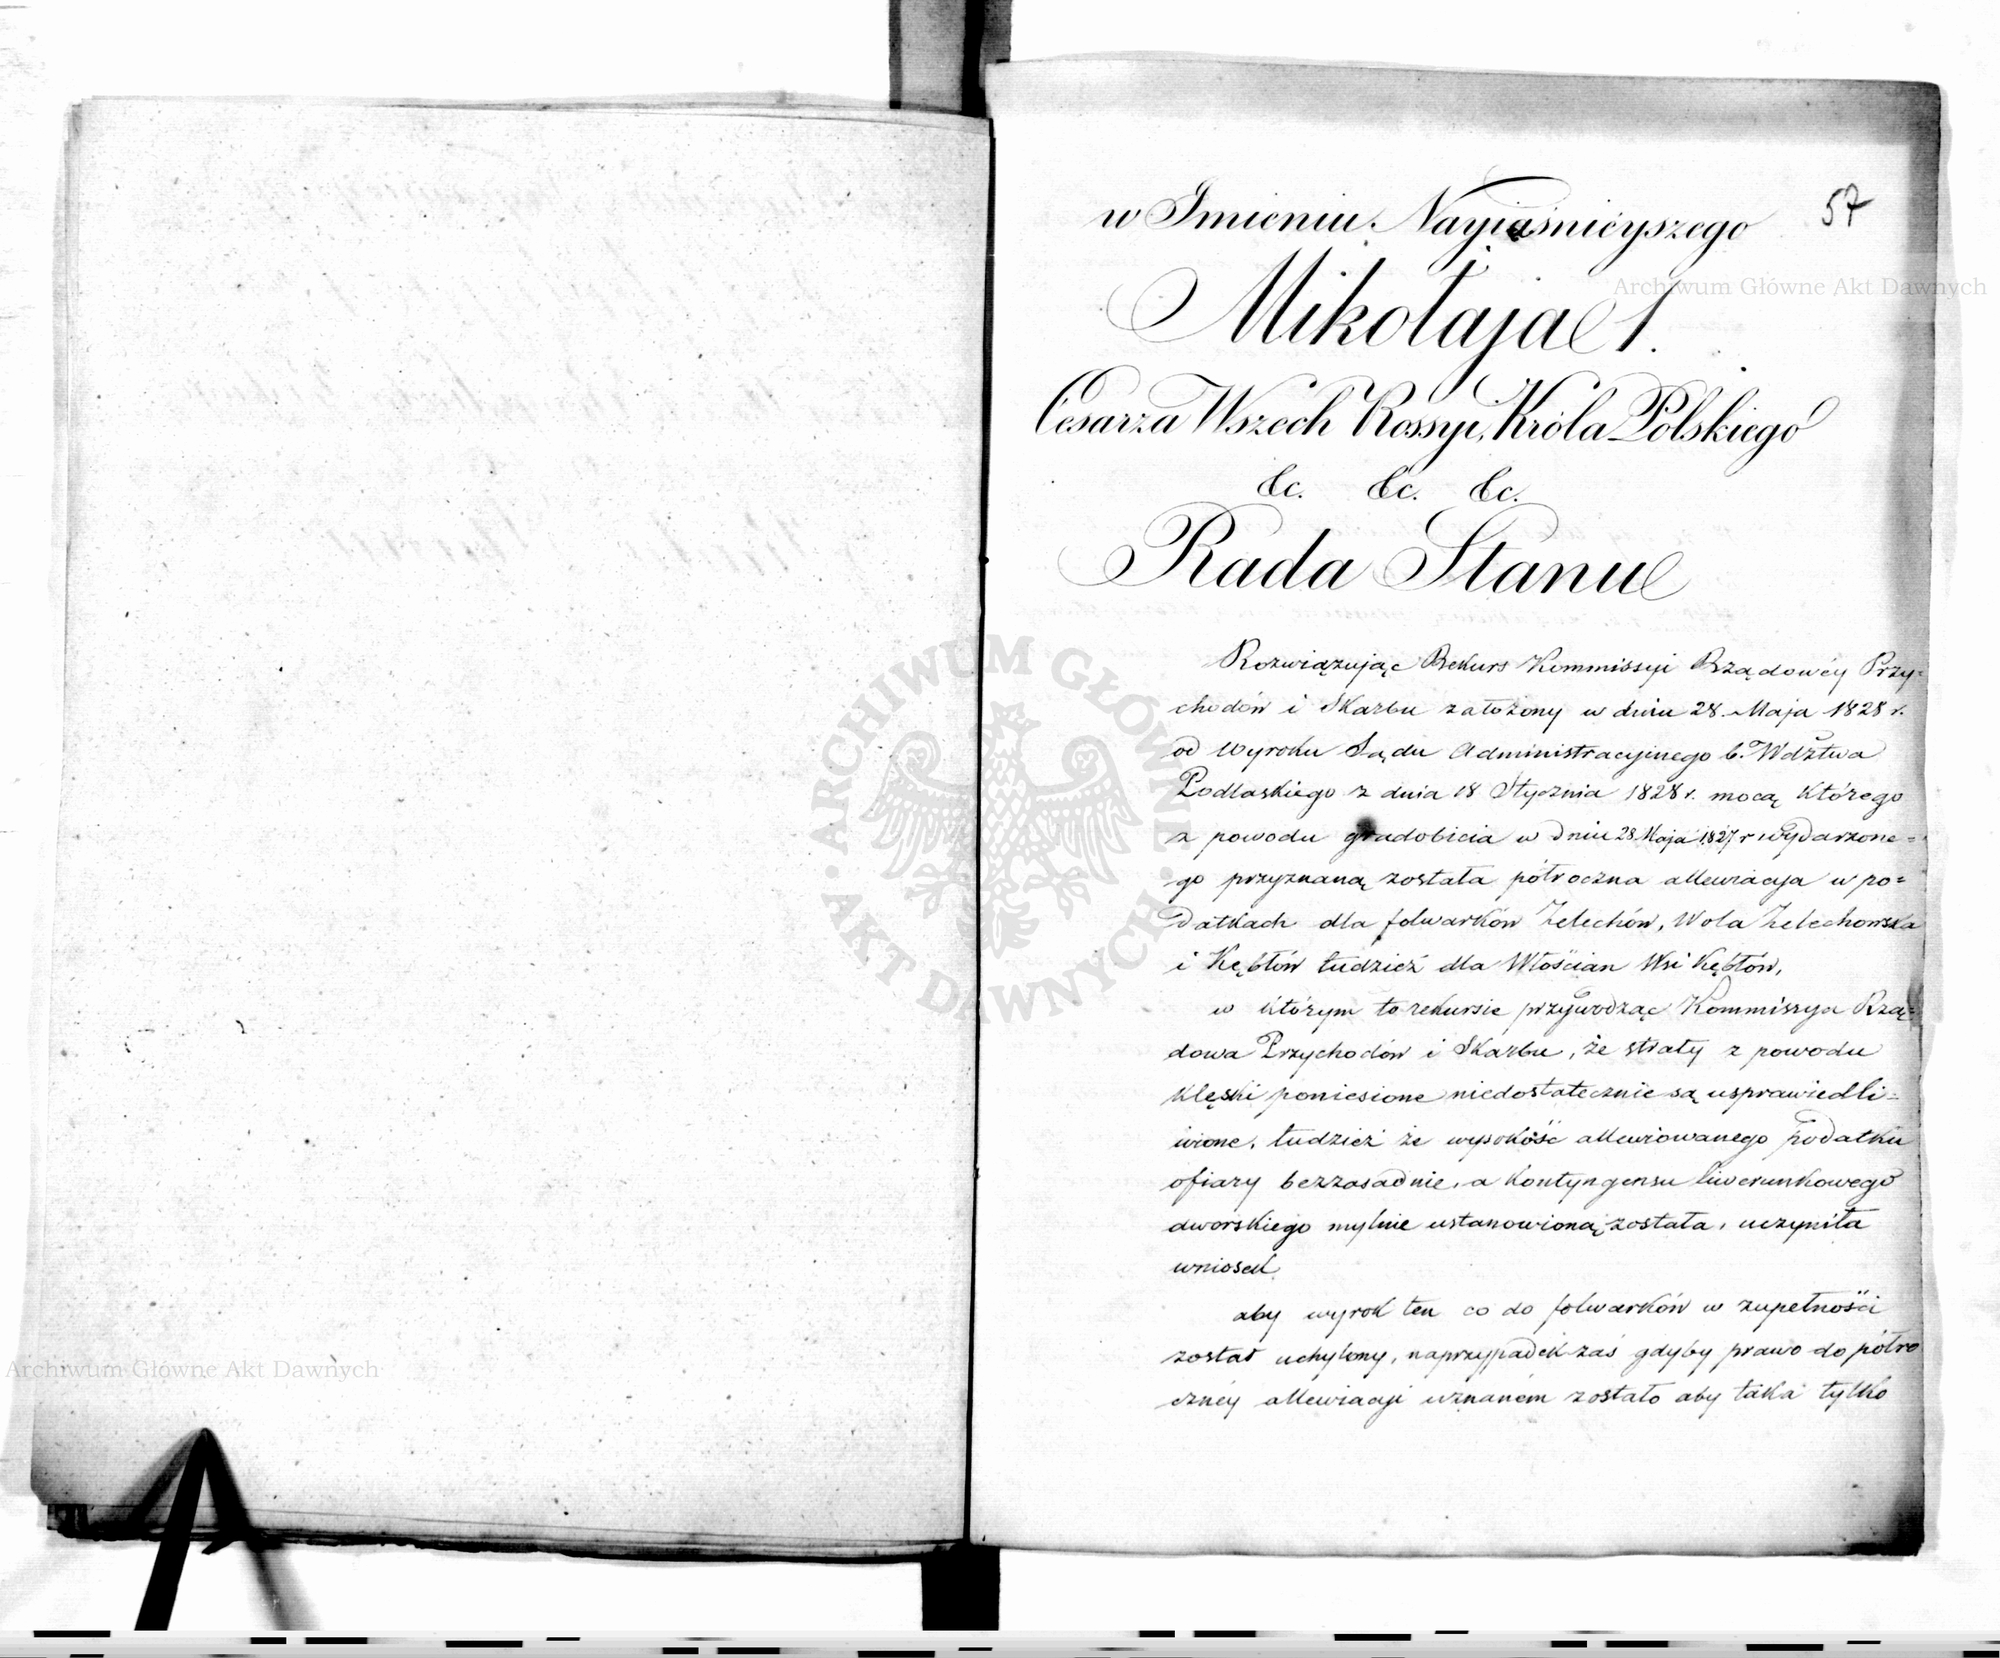 57
w Imieniu Nayjaśnieyszego
Mikołaja 1.
Cesarza Wszech Rossyi, Króla Polskiego
&c. &c. &c.
Rada Stanu
Rozwiązując Rekurs Kommissyi Rządowéy Przy-
chodów i Skarbu założony w dniu 28. Maja 1828 r.
od wyroku Sądu Administracyjnego b. Wdztwa
Podlaskiego z dnia 18 Stycznia 1828 r. mocą którego
z powodu gradobicia w dniu 28 Maja 1827 r wydarzone=
go przyznaną została półroczna allewiacyja w po=
datkach dla folwarków Żelechów, Wola Żelechowska
i Kębłów tudzież dla Włościan Wsi Kębłów,
w którym to rekursie przywodząc Kommissya Rzą=
dowa Przychodów i Skarbu, że straty z powodu
klęski poniesione niedostatecznie są usprawiedli=
wione, tudzież że wysokość allewiowanego podatku
ofiary bezzasadnie, a kontyngensu liwerunkowego
dworskiego mylnie ustanowioną została, uczyniła
wniosek
aby wyrok ten co do folwarków w zupełności
został uchylony, naprzypadek zaś gdyby prawo do półro
cznéy allewiacyi uznanem zostało aby taka tylko
Archiwum Główne Akt Dawnych
ARCHIWUM GŁÓWNE AKT DAWNYCH
Archiwum Główne Akt Dawnych